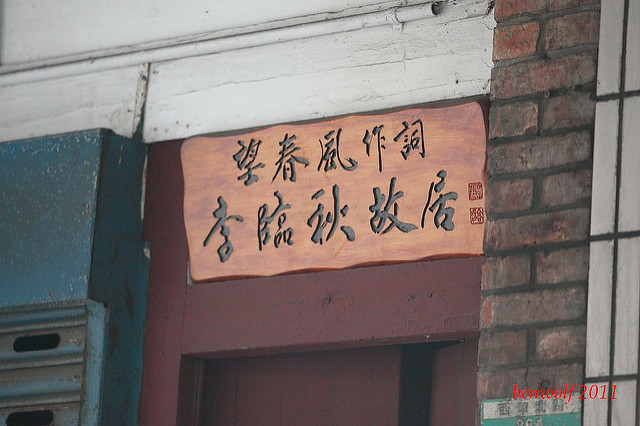 望春風作詞
李臨秋故居
benwolf 2011